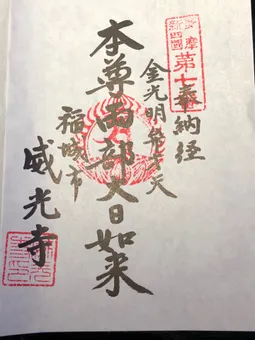 多摩
新四國
第七
奉納経
金光明弁才天
本尊両部大日如来
稲城市
威光寺